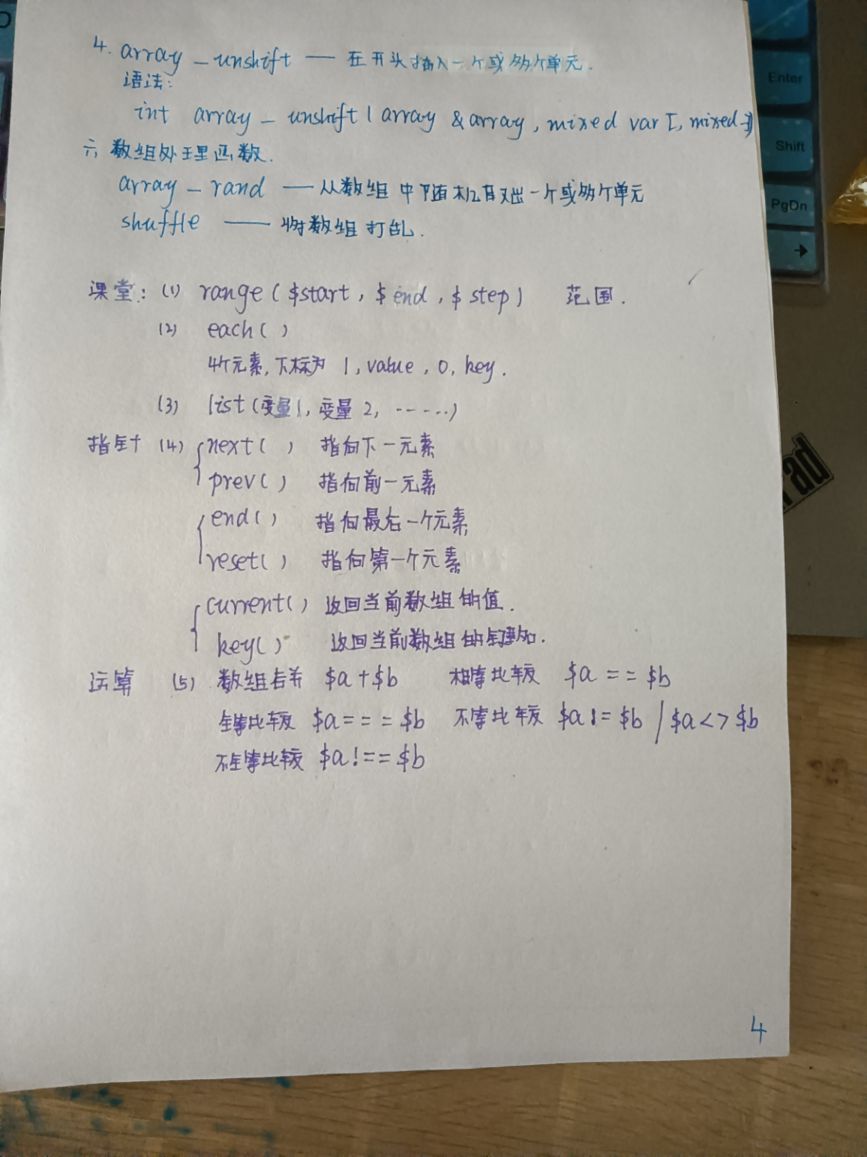 4. array_unshift — 在开头插入一个或多个单元.
语法:
int array_unshift(array &array, mixed var[, mixed…])
六 数组处理函数.
array_rand — 从数组中随机取出一个或多个单元
shuffle — 将数组打乱.
课堂: (1) range($start, $end, $step) 范围.
(2) each()
4个元素,下标为 1, value, 0, key.
(3) list(变量1, 变量2, ……)
指针 (4) next() 指向下一元素
prev() 指向前一元素
end() 指向最后一个元素
reset() 指向第一个元素
current() 返回当前数组的值.
key() 返回当前数组的键名.
运算 (5) 数组合并 $a+$b 相等比较 $a==$b
全等比较 $a===$b 不等比较 $a!=$b / $a<>$b
不全等比较 $a!==$b
4
Enter
Shift
PgDn